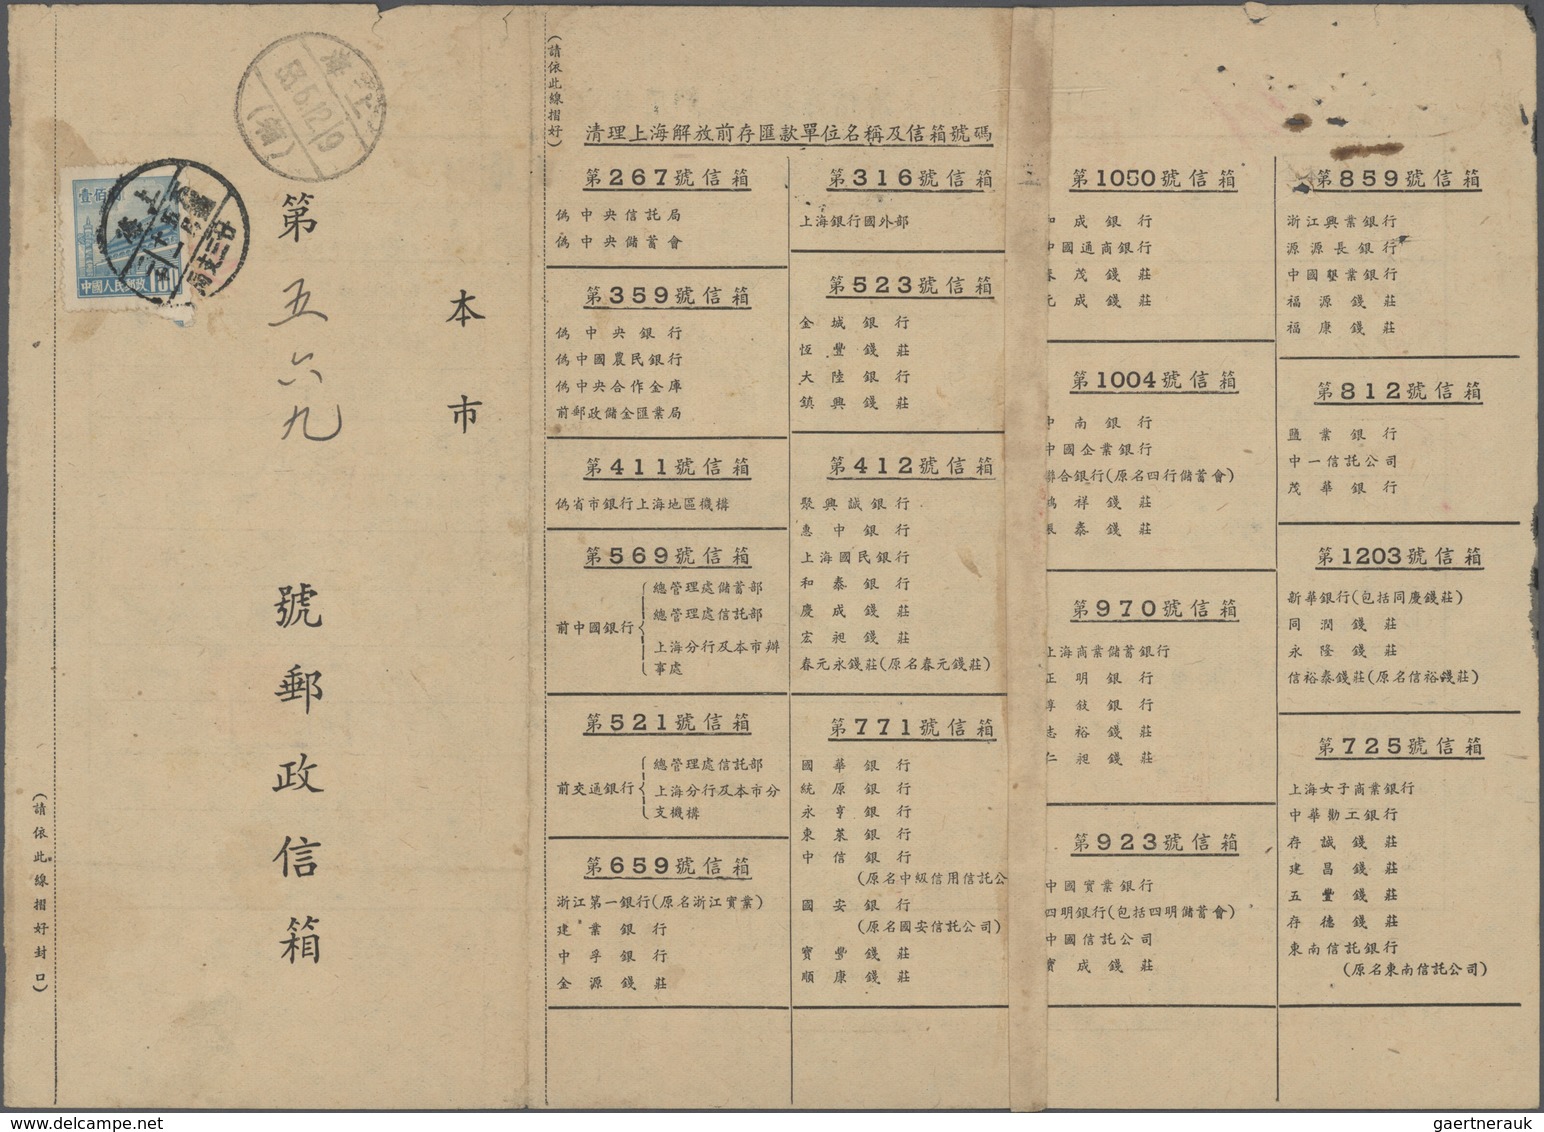 本市
第五六九號郵政信箱
(請依此線摺好封口)
壹佰
中國人民郵政
上海
53.5.12.19
(請依此線摺好)
清理上海解放前存匯款單位名稱及信箱號碼
第267號信箱
偽中央信託局
偽中央儲蓄會
第359號信箱
偽中央銀行
偽中國農民銀行
偽中央合作金庫
前郵政儲金匯業局
第411號信箱
偽省市銀行上海地區機構
第569號信箱
前中國銀行
總管理處儲蓄部
總管理處信託部
上海分行及本市辦
事處
第521號信箱
前交通銀行
總管理處信託部
上海分行及本市分
支機構
第659號信箱
浙江第一銀行(原名浙江實業)
建業銀行
中孚銀行
金源錢莊
第316號信箱
上海銀行國外部
第523號信箱
金城銀行
恆豐錢莊
大陸銀行
鎮興錢莊
第412號信箱
聚興誠銀行
惠中銀行
上海國民銀行
和泰銀行
慶成錢莊
宏昶錢莊
春元永錢莊(原名春元錢莊)
第771號信箱
國華銀行
統原銀行
永亨銀行
東萊銀行
中信銀行
(原名中級信用信託公
國安銀行
(原名國安信託公司)
寶豐錢莊
順康錢莊
第1050號信箱
和成銀行
中國通商銀行
春茂錢莊
元成錢莊
第1004號信箱
中南銀行
中國企業銀行
聯合銀行(原名四行儲蓄會)
鴻祥錢莊
振泰錢莊
第970號信箱
上海商業儲蓄銀行
正明銀行
惇敘銀行
志裕錢莊
仁昶錢莊
第923號信箱
中國實業銀行
四明銀行(包括四明儲蓄會)
中國信託公司
寶成錢莊
第859號信箱
浙江興業銀行
源源長銀行
中國墾業銀行
福源錢莊
福康錢莊
第812號信箱
鹽業銀行
中一信託公司
茂華銀行
第1203號信箱
新華銀行(包括同慶錢莊)
同潤錢莊
永隆錢莊
信裕泰錢莊(原名信裕錢莊)
第725號信箱
上海女子商業銀行
中華勸工銀行
存誠錢莊
建昌錢莊
五豐錢莊
存德錢莊
東南信託銀行
(原名東南信託公司)
gaertnerauk